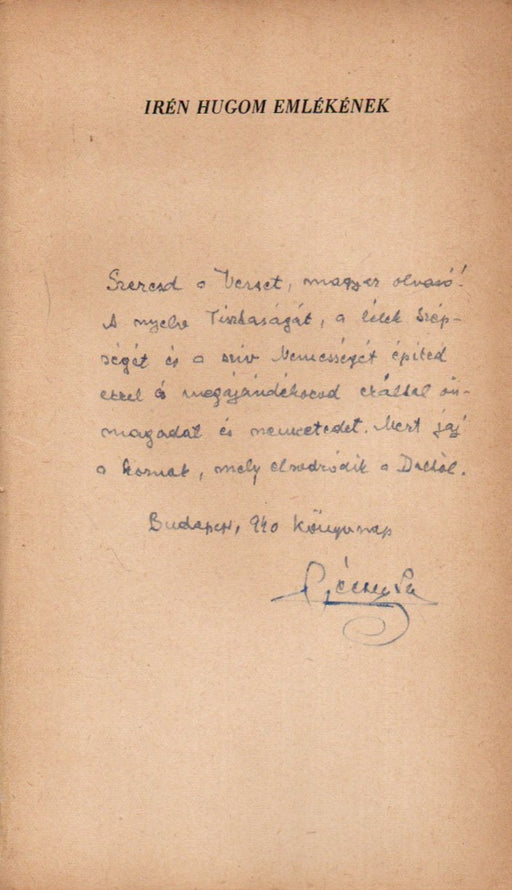 IRÉN HUGOM EMLÉKÉNEK
Szeresd a Verset, magyar olvasó!
A nyelv Tisztaságát, a lélek Szép-
ségét és a szív Nemességét építed
ezzel és megajándékozod ezáltal ön-
magadat és nemzetedet. Mert jaj
a kornak, mely elsodródik a Daltól.
Budapest, 940 Könyvnap